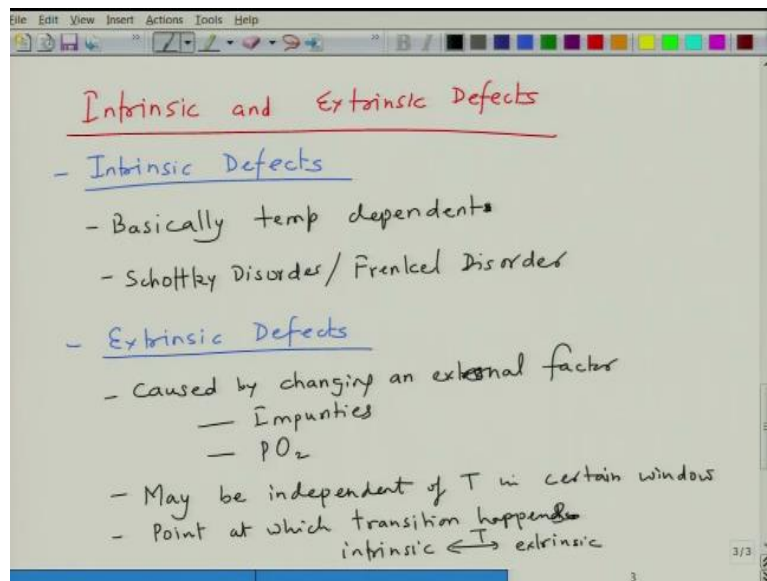 File Edit View Insert Actions Tools Help
Intrinsic and Extrinsic Defects
- Intrinsic Defects
- Basically temp dependent
- Schottky Disorder/ Frenkel Disorder
- Extrinsic Defects
- Caused by changing an external factor
— Impurities
— PO₂
- May be independent of T in certain window
- Point at which transition happens
intrinsic <-T-> extrinsic
3/3
3